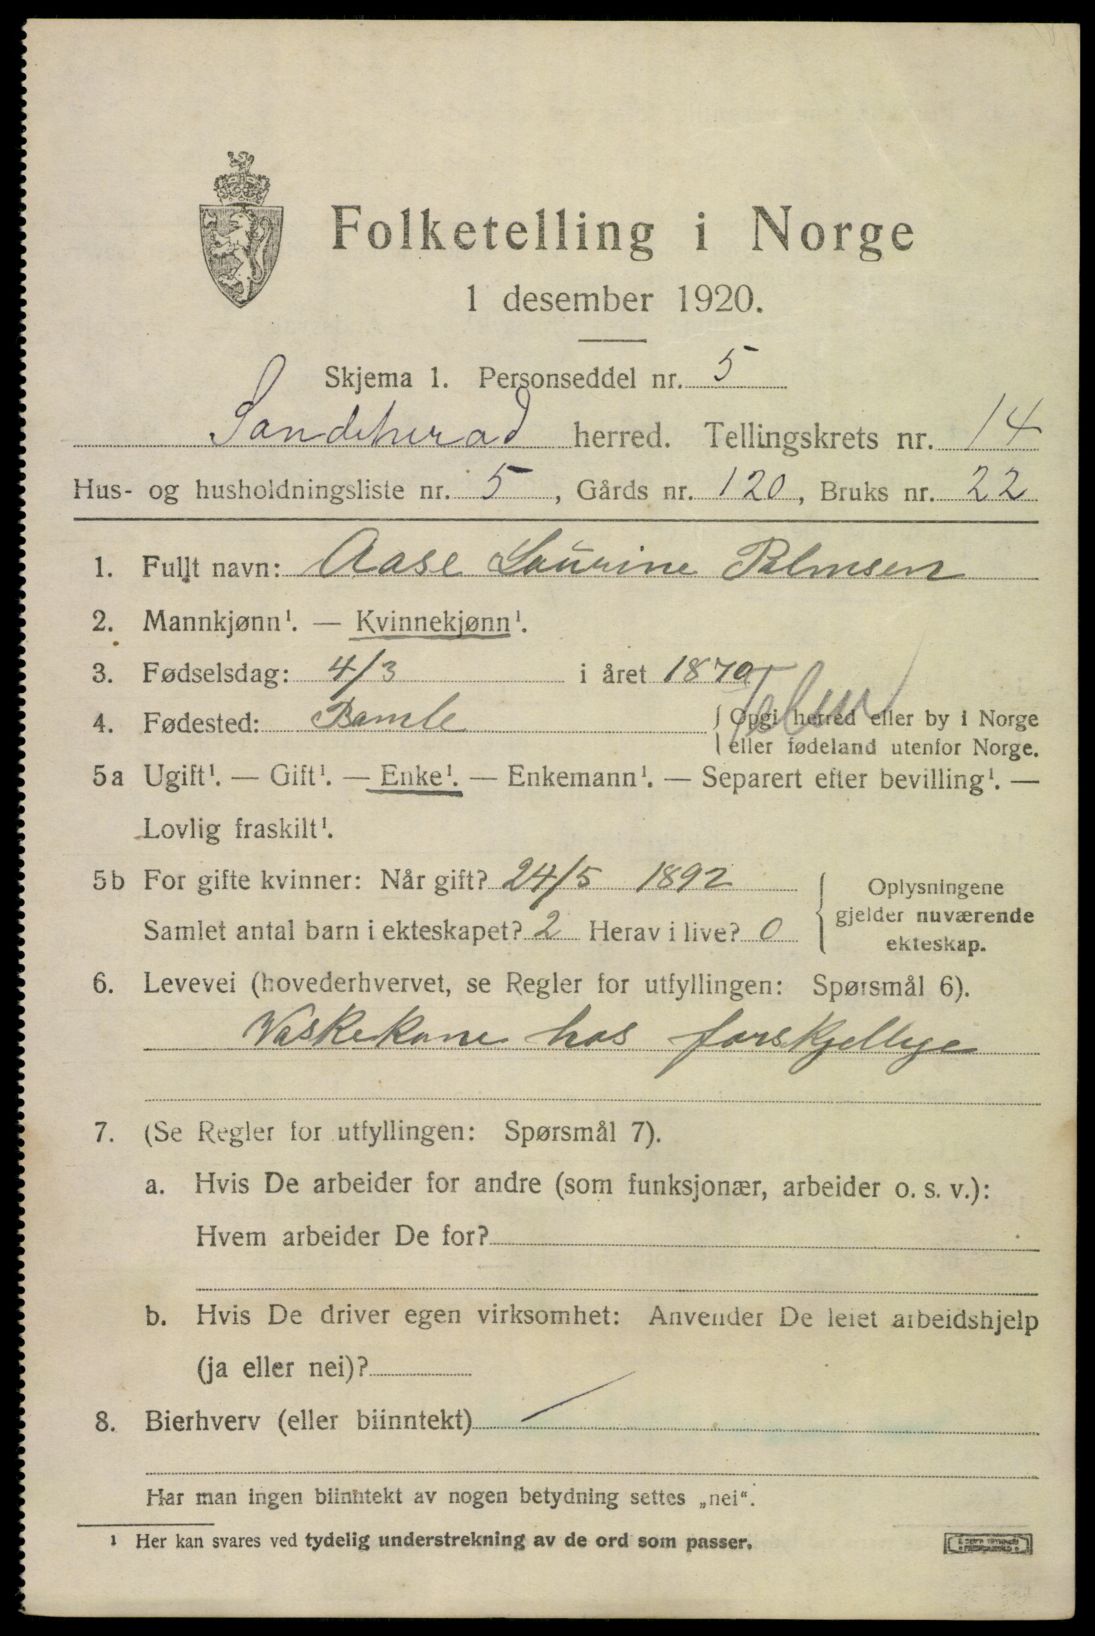 Folketelling i Norge
1 desember 1920.
Skjema 1. Personseddel nr. 5
Sandeherad herred. Tellingskrets nr. 14
Hus- og husholdningsliste nr. 5, Gårds nr. 120, Bruks nr. 22
1. Fullt navn: Aase Laurine Palmsen
2. Mannkjønn¹. — Kvinnekjønn¹.
3. Fødselsdag: 4/3 i året 1870
4. Fødested: Bamle
Opgi herred eller by i Norge
eller fødeland utenfor Norge.
5a Ugift¹. — Gift¹. — Enke¹. — Enkemann¹. — Separert efter bevilling¹. —
Lovlig fraskilt¹.
5b For gifte kvinner: Når gift? 24/5 1892
Samlet antal barn i ekteskapet? 2 Herav i live? 0
Oplysningene
gjelder nuværende
ekteskap.
6. Levevei (hovederhvervet, se Regler for utfyllingen: Spørsmål 6).
Vaskekone hos forskjellige
7. (Se Regler for utfyllingen: Spørsmål 7).
a. Hvis De arbeider for andre (som funksjonær, arbeider o. s. v.):
Hvem arbeider De for?
b. Hvis De driver egen virksomhet: Anvender De leiet arbeidshjelp
(ja eller nei)?
8. Bierhverv (eller biinntekt)
Har man ingen biinntekt av nogen betydning settes „nei“.
¹ Her kan svares ved tydelig understrekning av de ord som passer.